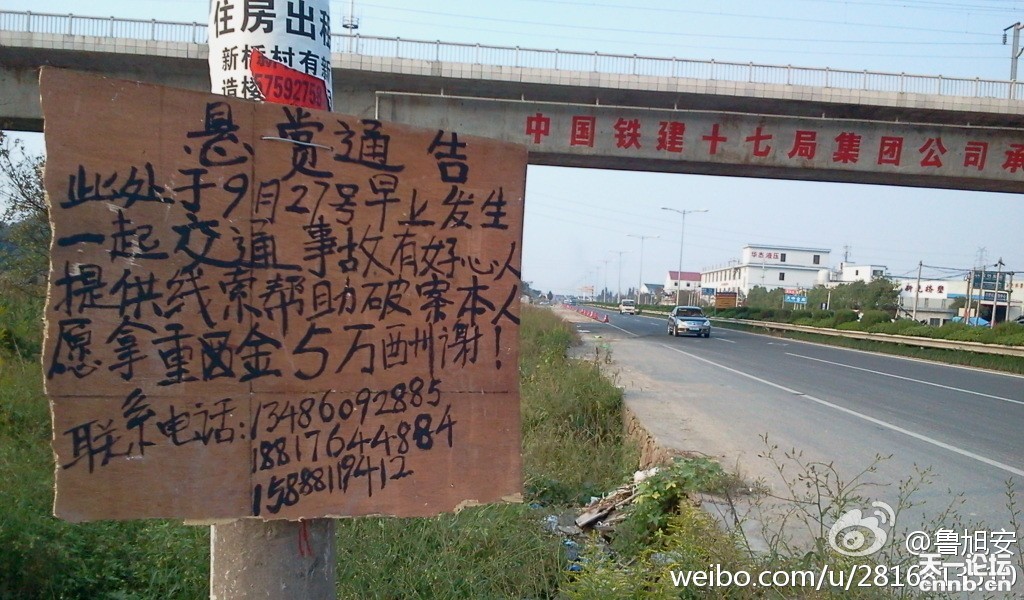 住房出租
新桥村有新
造楼
57592758
中国铁建十七局集团公司承
悬赏通告
此处于9月27号早上发生
一起交通事故有好心人
提供线索帮助破案本人
愿拿重酉金5万酬谢!
联系电话:13486092885
18817644884
15888119412
华杰液压
@鲁旭安
天一论坛
cnnb.cn